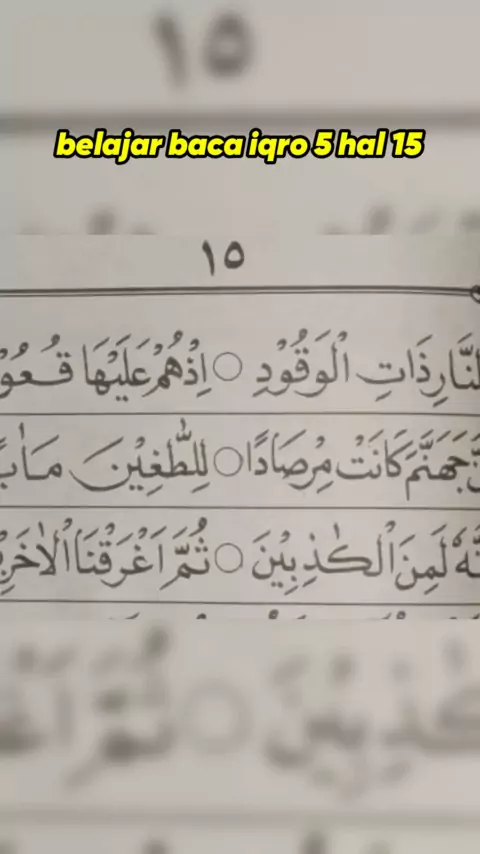 ١٥
belajar baca iqro 5 hal 15
١٥
ذَاتِ الْوَقُوْدِ ○ اِذْهُمْ عَلَيْهَا
جَهَنَّمَ كَانَتْ مِرْصَادًا ○ لِلطّٰغِيْنَ
لَمِنَ الْكٰذِبِيْنَ ○ ثُمَّ اَغْرَقْنَا